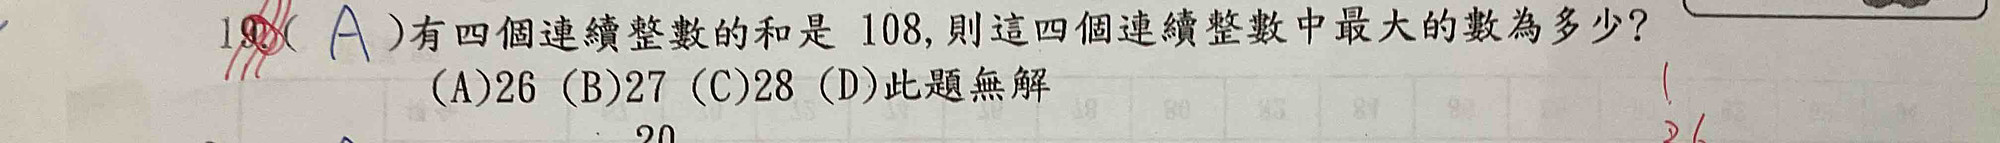 19.( A )有四個連續整數的和是 108,則這四個連續整數中最大的數為多少?
(A)26 (B)27 (C)28 (D)此題無解
20